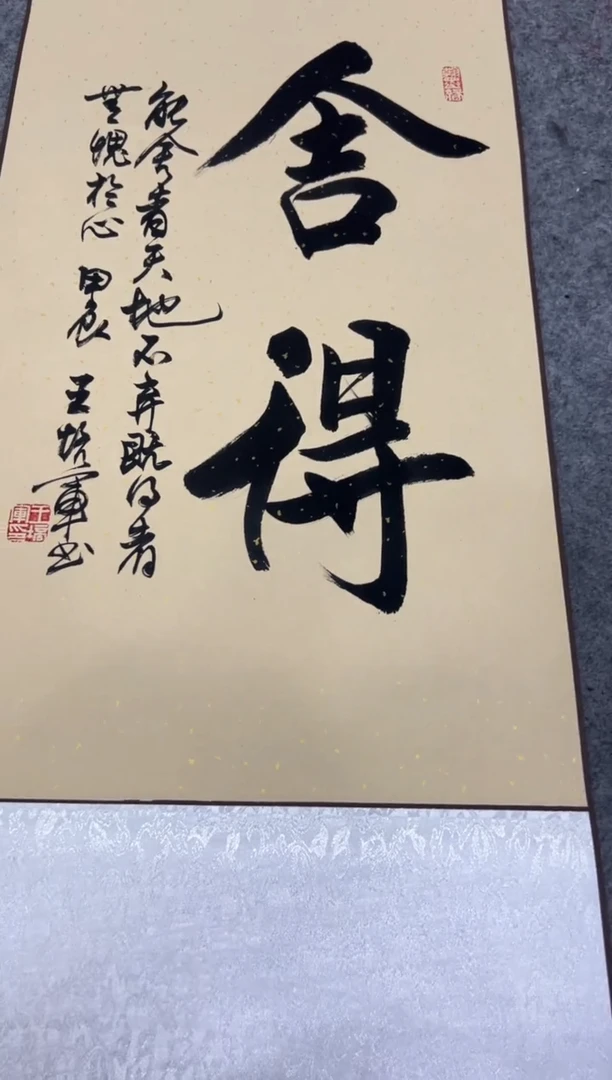 舍
得
能舍者天地不弃既得者
無愧於心 甲辰 王培軍书